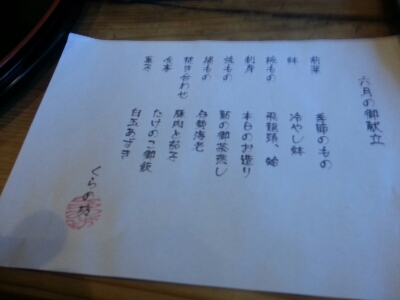 六月の御献立
前菜 季節のもの
鉢 冷やし鉢
椀もの 飛龍頭、蛤
刺身 本日のお造り
焼もの 鮎の御茶蒸し
揚もの 白勢海老
炊き合わせ 豚肉と茄子
食事 たけのこ御飯
菓子 白玉あずき
くらの坊